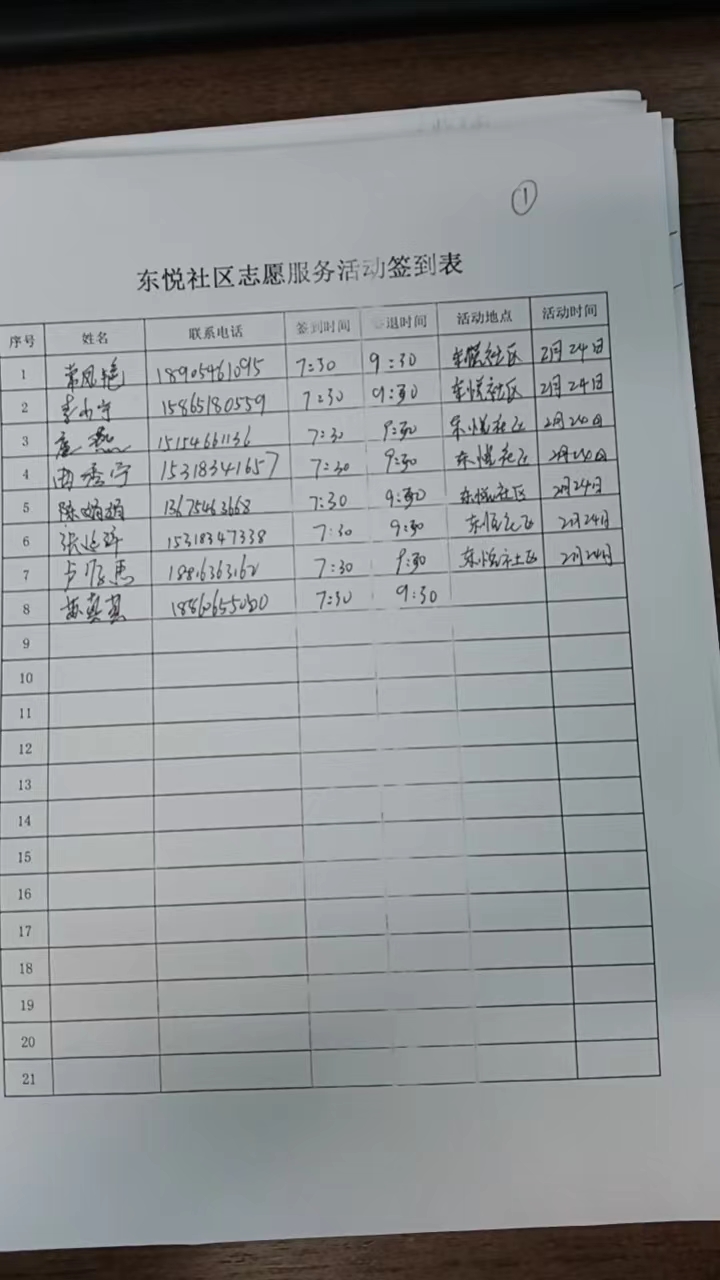 ①
东悦社区志愿服务活动签到表
序号 姓名 联系电话 签到时间 签退时间 活动地点 活动时间
1 常凤艳 18905461095 7:30 9:30 东悦社区 2月24日
2 李小宁 15865180559 7:30 9:30 东悦社区 2月24日
3 15154661136 7:30 9:30 东悦社区 2月24日
4 秀宁 15318341657 7:30 9:30 东悦社区 2月24日
5 陈娟娟 13675463668 7:30 9:30 东悦社区 2月24日
6 张 15318347338 7:30 9:30 东悦社区 2月24日
7 卢 7:30 9:30 东悦社区 2月24日
8 18860655050 7:30 9:30
9
10
11
12
13
14
15
16
17
18
19
20
21